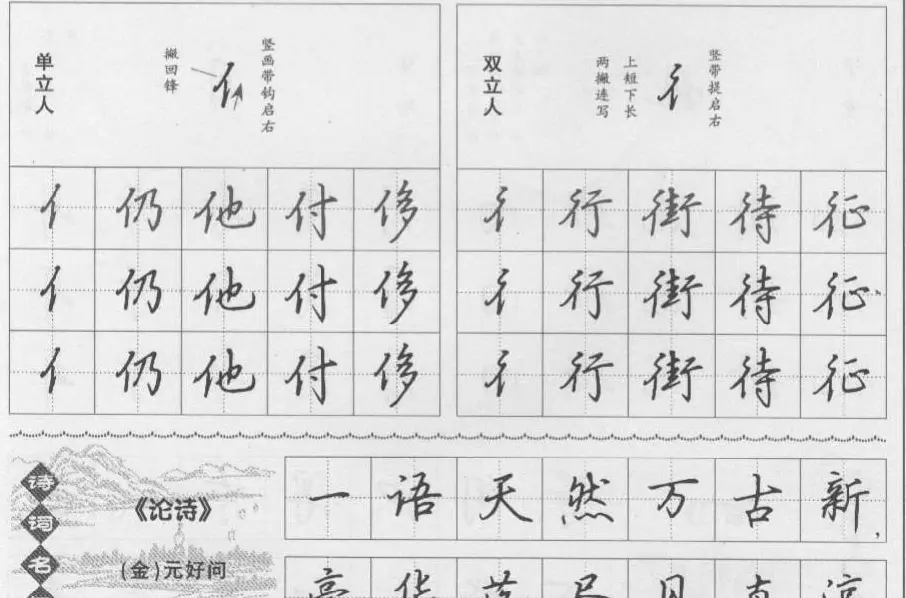 单立人
撇回锋
竖画带钩启右
双立人
两撇连写
上短下长
竖带提启右
亻 仍 他 付 侈 彳 行 街 待 征
亻 仍 他 付 侈 彳 行 街 待 征
亻 仍 他 付 侈 彳 行 街 待 征
诗词名
《论诗》
(金)元好问
一语天然万古新,